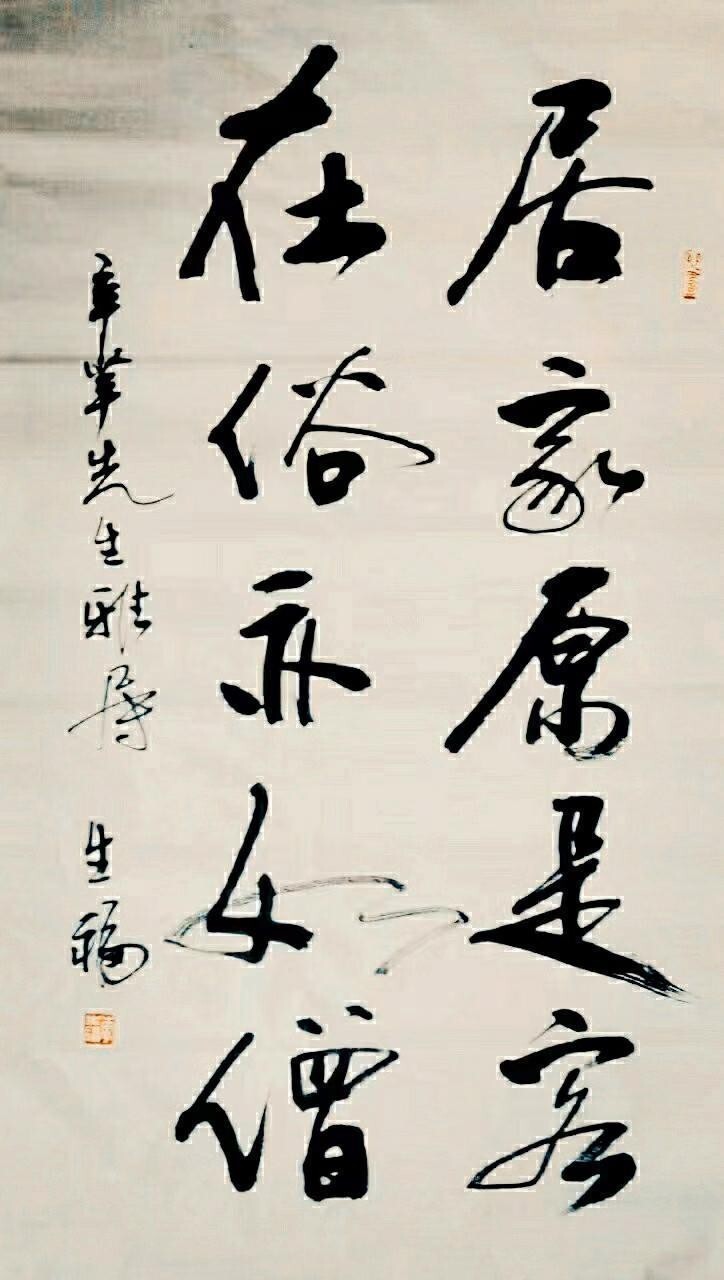 居家原是客
在俗亦如僧
先生雅属 生福